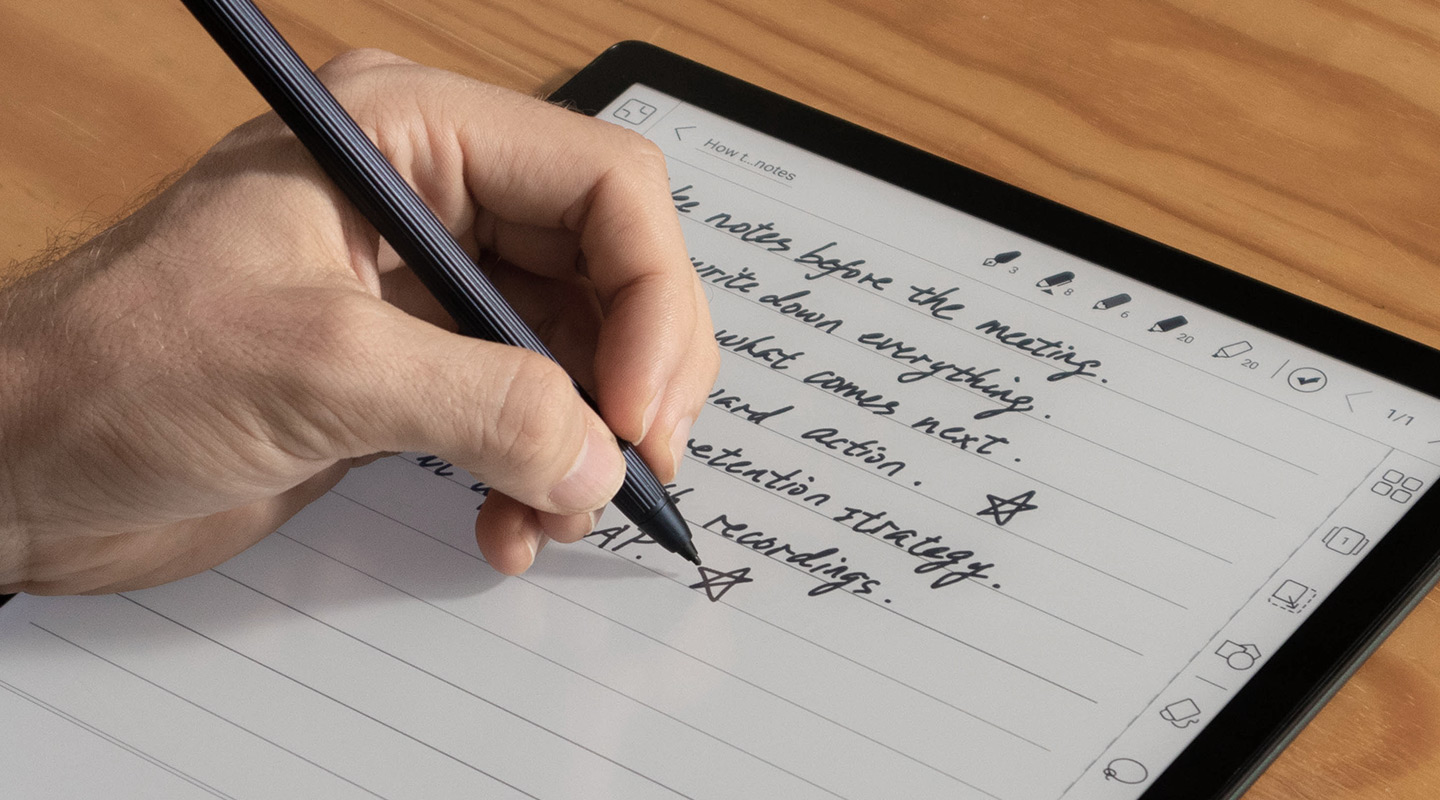 How t...notes
3 8 6 20 20 1/1
notes before the meeting.
write down everything.
what comes next.
action.
retention strategy.
recordings.
AP.
1